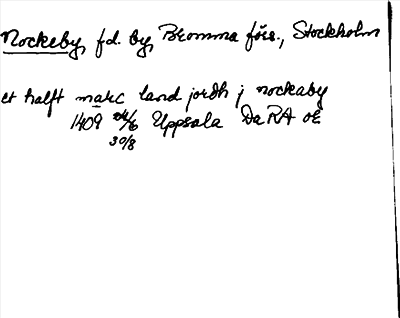 Nockeby, fd. by, Bromma förs., Stockholm
et halft marc land jordh j nockaby
1409 24/6 Uppsala Da RA oE
30/8